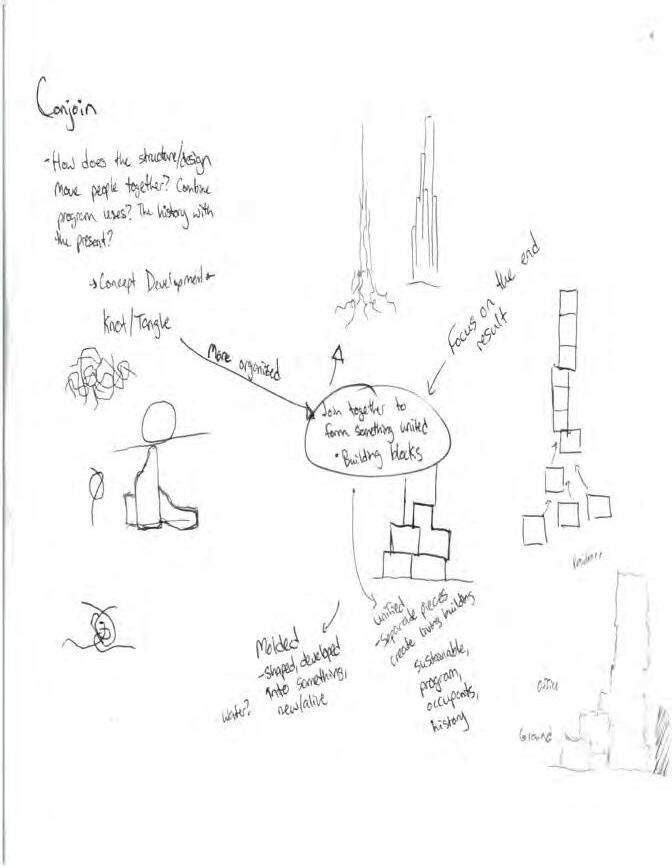 Conjoin
-How does the structure/design
move people together? Combine
program uses? The history with
the present?
→Concept Development
Knot/Tangle
More organized
Focus on the end
result
Join together to
form something united
•Building blocks
Molded
-shaped, developed
into something,
new/alive
water?
unified
-separate pieces
create living building
sustainable,
program,
occupants,
history
Residence
Office
Ground